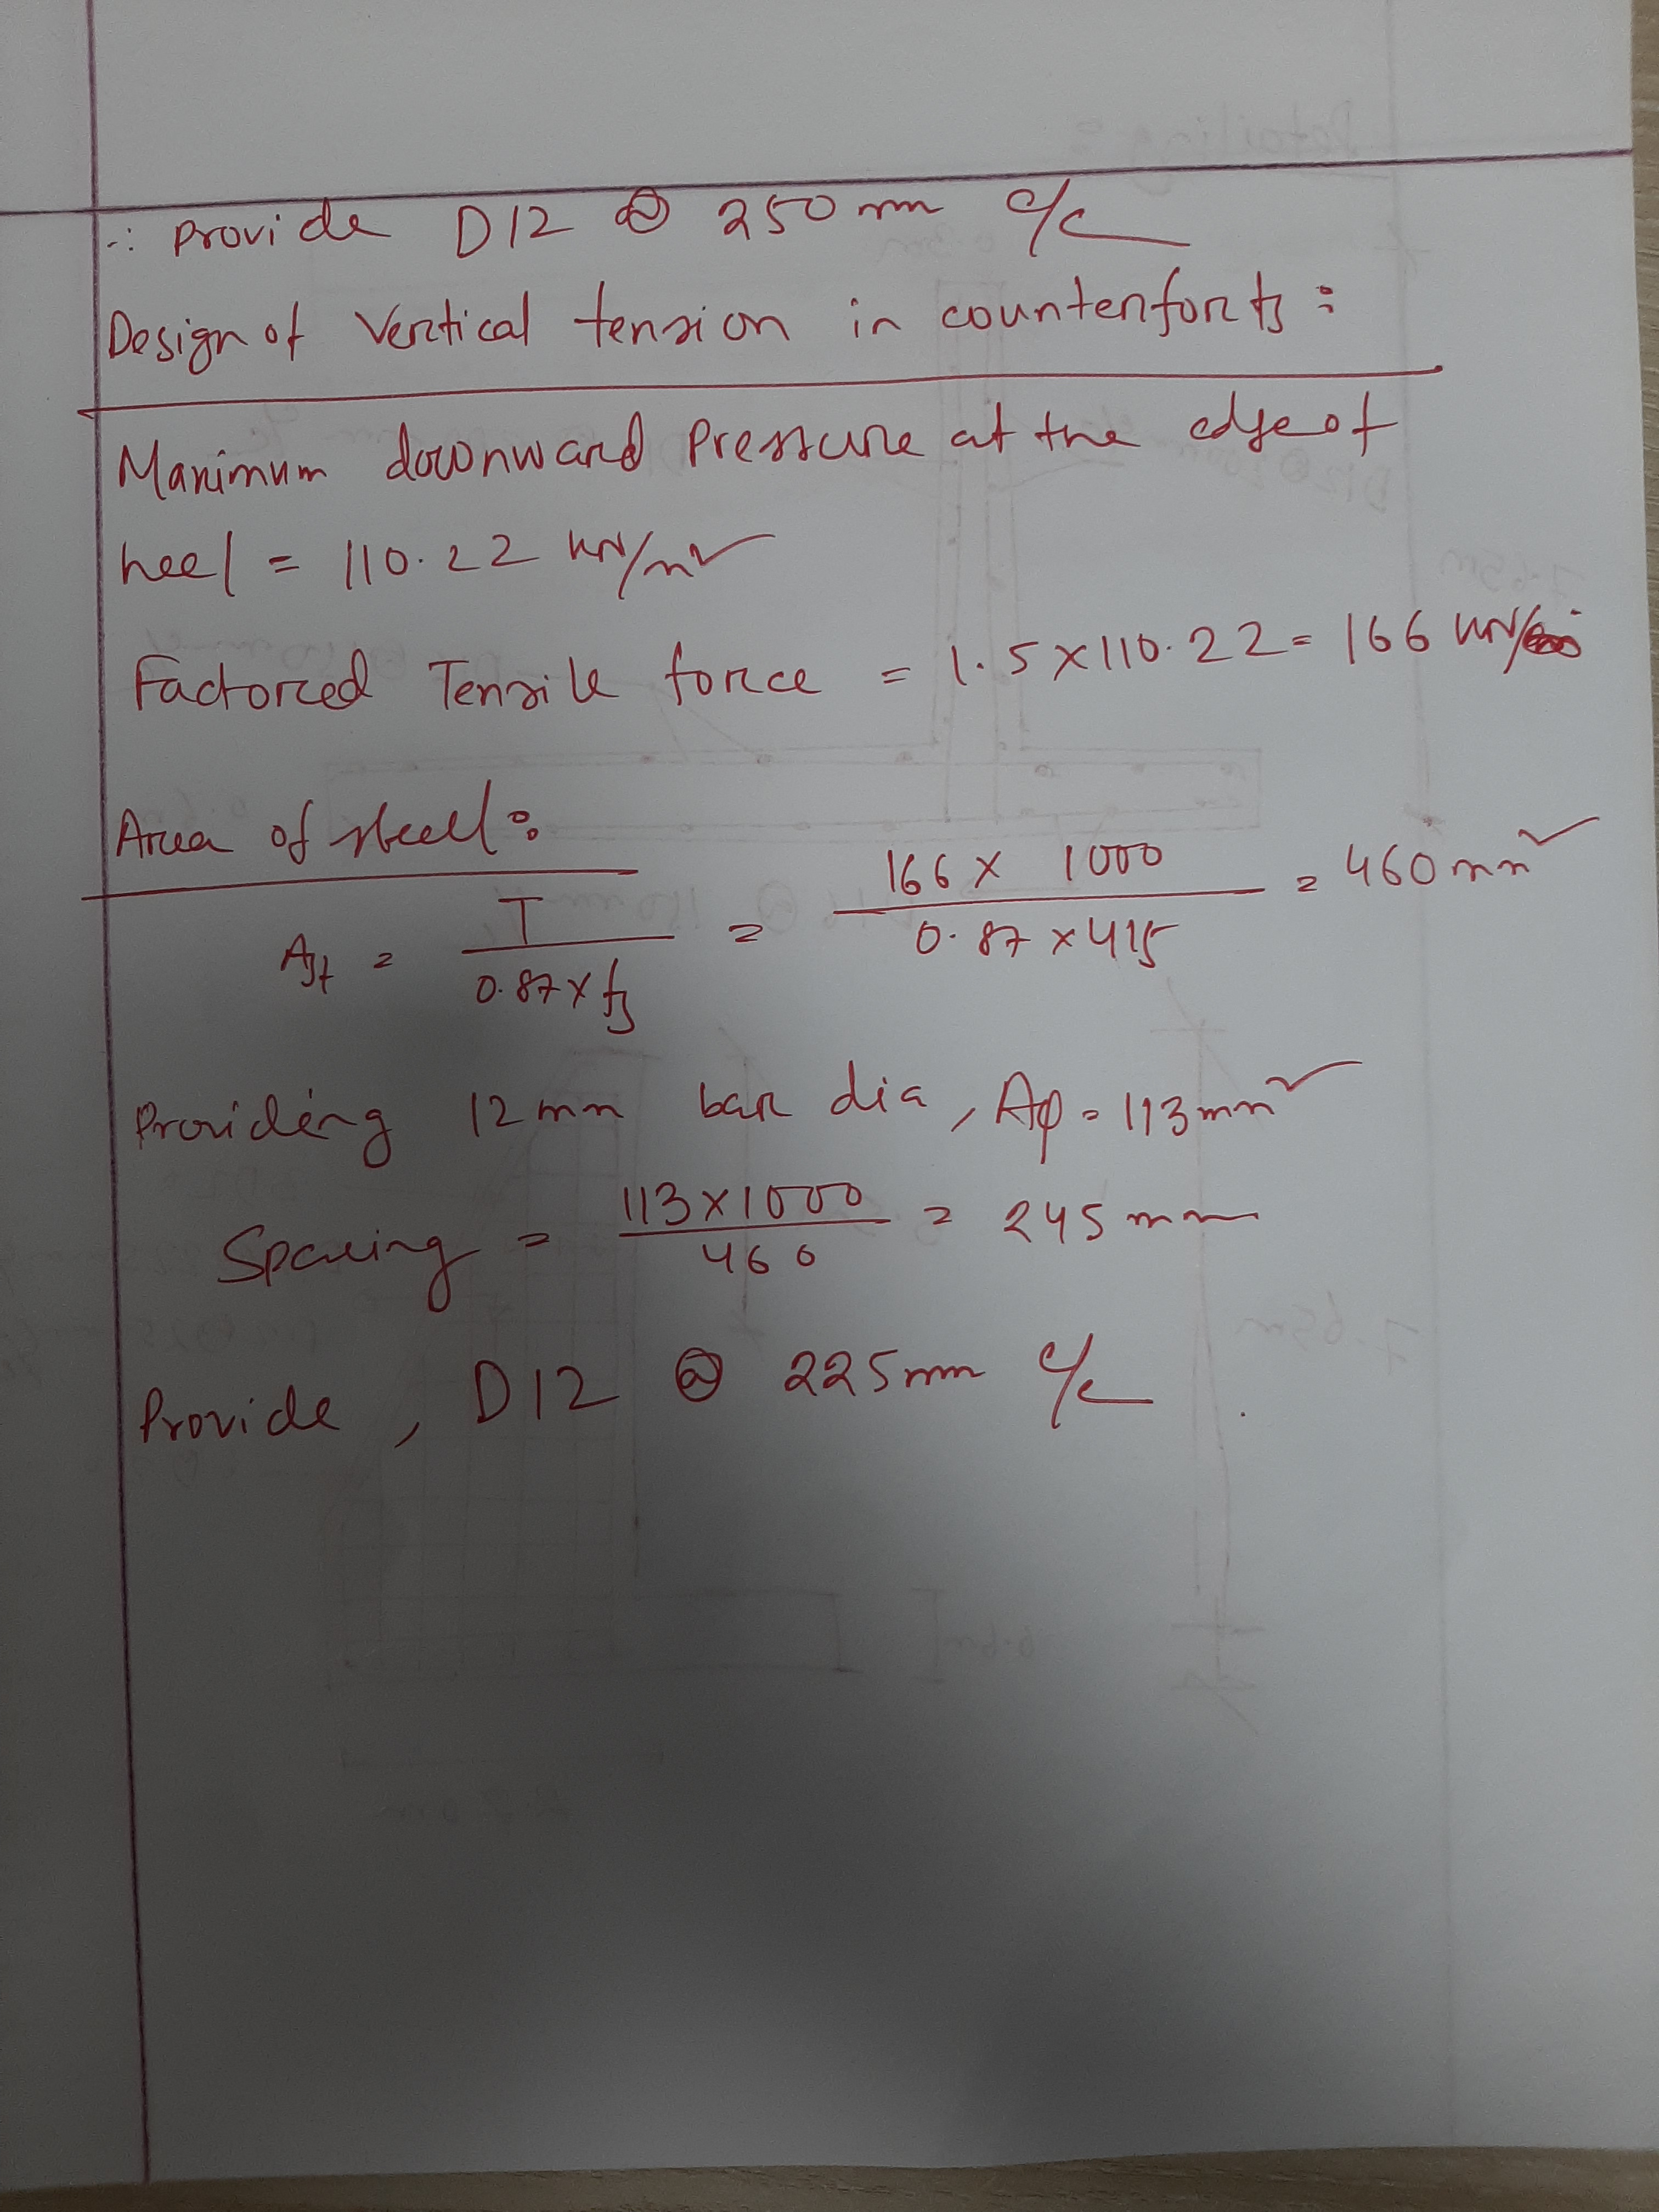 ∴ Provide D12 @ 250mm c/c
Design of vertical tension in counterforts:
Maximum downward Pressure at the edge of
heel = 110.22 kN/m²
Factored Tensile force = 1.5×110.22 = 166 kN/
Area of steel:
Ast = T / 0.87×fy = 166 × 1000 / 0.87×415 = 460mm²
Providing 12mm bar dia, Aφ = 113mm²
Spacing = 113×1000 / 460 = 245mm
Provide, D12 @ 225mm c/c